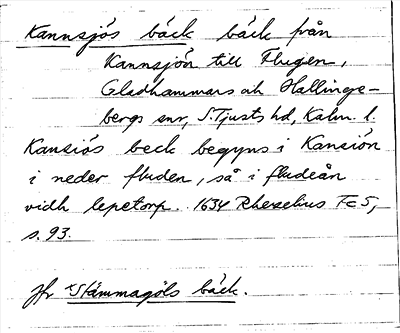 Kannsjös bäck bäck från
Kannsjön till Flugen,
Gladhammars och Hallinge-
bergs snr, S. Tjusts hd, Kalm. l.
Kansiös beck begyns i Kansiön
i neder fluden, så i fludeån
vidh lepetorp. 1634 Rhezelius Fc5,
s. 93.
Jfr Stämmagöls bäck.